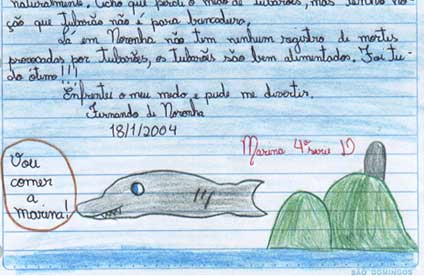 naturalmente. Acho que perdi o medo de tubarões, mas tenho no-
ção que tubarão não é para brincadeira.
Lá em Noronha não tem nenhum registro de mortes
provocadas por tubarões, os tubarões são bem alimentados. Foi tu-
do otimo!!!
Enfrentei o meu medo e pude me divertir.
Fernando de Noronha
18/1/2004
Marina 4ª serie D
Vou
comer
a
marina!
SÃO DOMINGOS